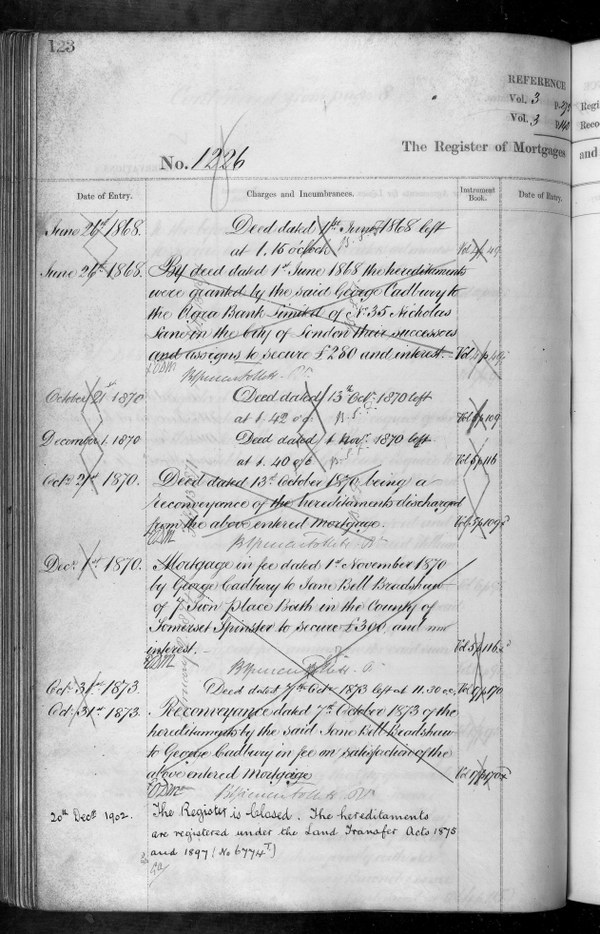 123
REFERENCE
Vol. 3 p.
Vol. 3 p. 140
The Register of Mortgages
and
No. 1226
Date of Entry.
Charges and Incumbrances.
Instrument Book.
Date of Entry.
June 26th 1868. Deed dated 1st June 1868 left
at 1.15 o'clock Vol 4 p 49
June 26th 1868. By deed dated 1st June 1868 the hereditaments
were granted by the said George Cadbury to
the Agra Bank Limited of No 35 Nicholas
Lane in the City of London their successors
and assigns to secure £280 and interest. Vol 4 p 49
October 21st 1870 Deed dated 13th Octr 1870 left
at 1.42 Vol 5 p 109
December 1. 1870 Deed dated 1 Novr 1870 left
at 1.40 Vol 5 p 116
Octr 21st 1870. Deed dated 13th October 1870 being a
reconveyance of the hereditaments discharged
from the above entered Mortgage. Vol 5 p 109
Decr 1st 1870. Mortgage in fee dated 1st November 1870
by George Cadbury to Jane Bell Bradshaw
of 7 Sion place Bath in the County of
Somerset Spinster to secure £300, and
interest. Vol 5 p 116
Octr 31st 1873. Deed dated 7th Octr 1873 left at 11.30 Vol 9 p 170
Octr 31st 1873. Reconveyance dated 7th October 1873 of the
hereditaments by the said Jane Bell Bradshaw
to George Cadbury in fee on satisfaction of the
above entered Mortgage Vol 9 p 170
20th Decr 1902. The Register is closed. The hereditaments
are registered under the Land Transfer Acts 1875
and 1897 (No 6774)